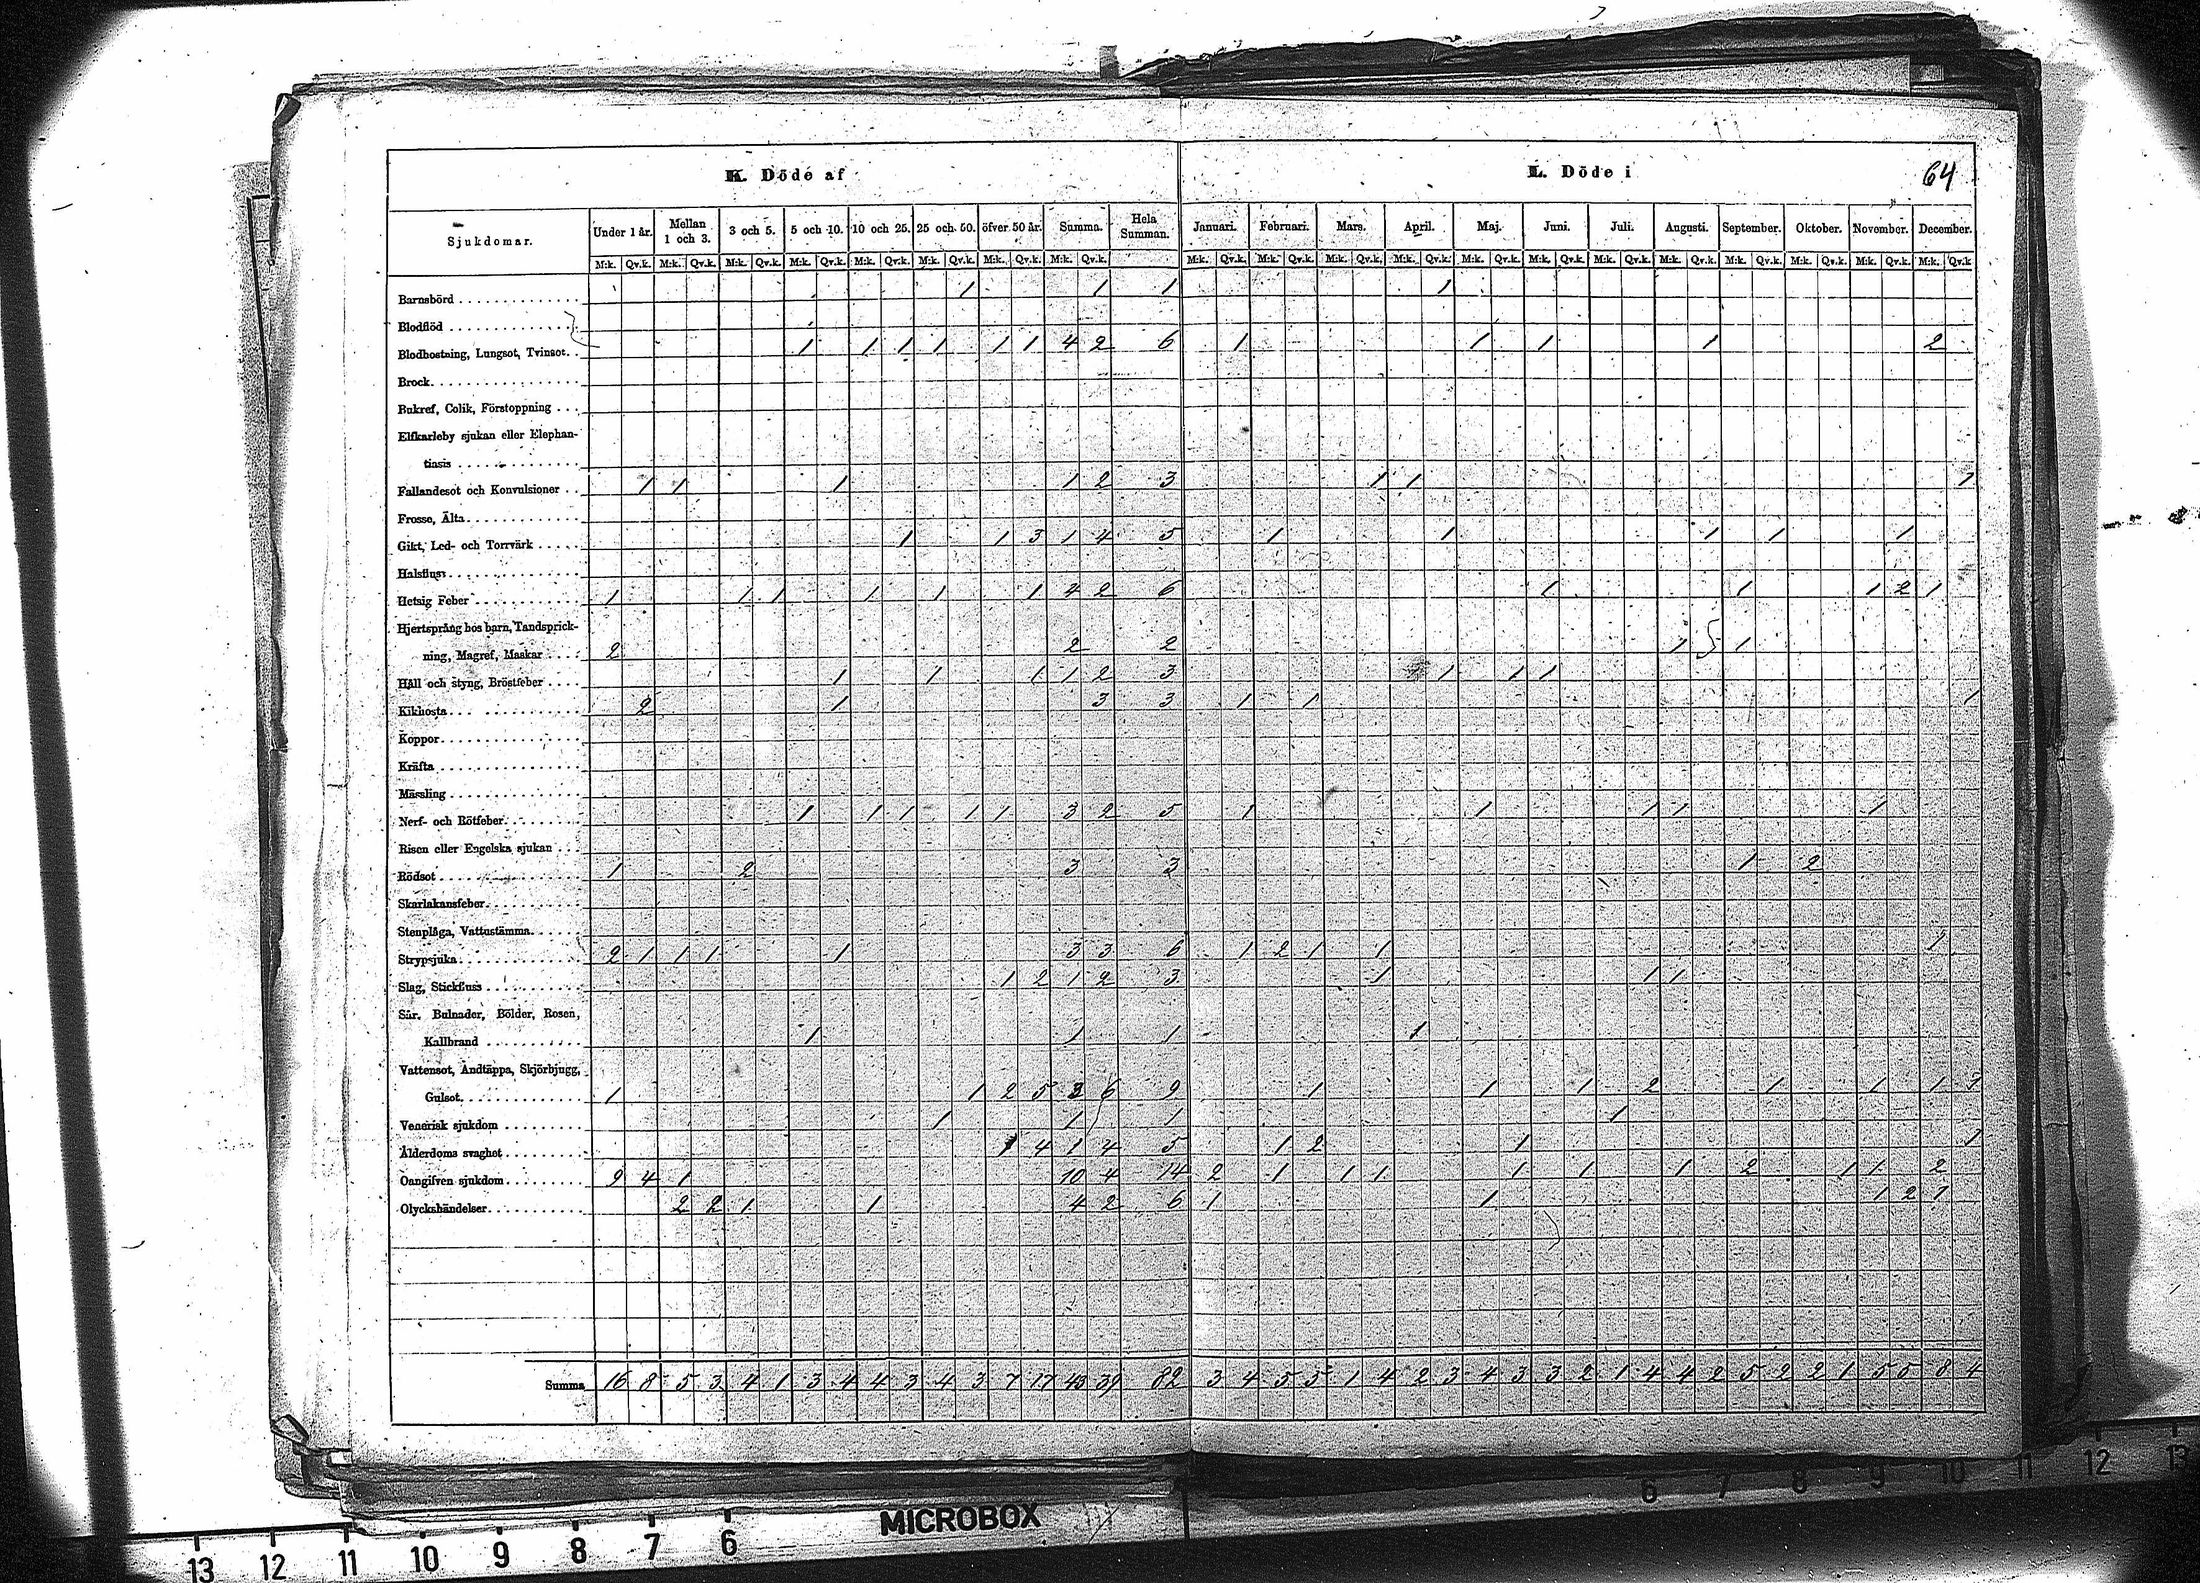 K. Döde af
L. Döde i
64
Sjukdomar. Under 1 år. Mellan 1 och 3. 3 och 5. 5 och 10. 10 och 25. 25 och 50. öfver 50 år. Summa. Hela Summan. Januari. Februari. Mars. April. Maj. Juni. Juli. Augusti. September. Oktober. November. December.
M:k. Qv.k. M:k. Qv.k. M:k. Qv.k. M:k. Qv.k. M:k. Qv.k. M:k. Qv.k. M:k. Qv.k. M:k. Qv.k. M:k. Qv.k. M:k. Qv.k. M:k. Qv.k. M:k. Qv.k. M:k. Qv.k. M:k. Qv.k. M:k. Qv.k. M:k. Qv.k. M:k. Qv.k. M:k. Qv.k. M:k. Qv.k. M:k. Qv.k
Barnsbörd 1 1 1 1
Blodflöd
Blodhostning, Lungsot, Tvinsot. 1 1 1 1 1 1 4 2 6 1 1 1 1 2
Brock
Bukref, Colik, Förstoppning
Elfkarleby sjukan eller Elephan-
tiasis
Fallandesot och Konvulsioner 1 1 1 1 2 3 1 1 1
Frosse, Älta
Gikt, Led- och Torrvärk 1 1 3 1 4 5 1 1 1 1 1
Halsfluss
Hetsig Feber 1 1 1 1 1 1 4 2 6 1 1 1 2 1
Hjertsprång hos barn, Tandsprick-
ning, Magref, Maskar 2 2 2 1 1
Håll och styng, Bröstfeber 1 1 1 1 2 3 1 1 1
Kikhosta 2 1 3 3 1 1 1
Koppor
Kräfta
Mässling
Nerf- och Rötfeber 1 1 1 1 1 3 2 5 1 1 1 1 1
Risen eller Engelska sjukan
Rödsot 1 2 3 3 1 2
Skarlakansfeber
Stenplåga, Vattustämma
Strypsjuka 2 1 1 1 1 3 3 6 1 2 1 1 1
Slag, Stickfluss 1 2 1 2 3 1 1 1
Sår, Bulnader, Bölder, Rosen,
Kallbrand 1 1 1 1
Vattensot, Andtäppa, Skjörbjugg,
Gulsot 1 1 2 5 3 6 9 1 1 1 2 1 1 1
Venerisk sjukdom 1 1 1 1
Ålderdoms svaghet 1 4 1 4 5 1 2 1 1
Oangifven sjukdom 9 4 1 10 4 14 2 1 1 1 1 1 1 2 1 1 2
Olyckshändelser 2 2 1 1 4 2 6 1 1 1 2 1
Summa 16 8 5 3 4 1 3 4 4 3 4 3 7 17 43 39 82 3 4 5 5 1 4 2 3 4 3 3 2 1 4 4 2 5 2 2 1 5 5 8 4
MICROBOX
13 12 11 10 9 8 7 6
6 7 8 9 10 11 12 13